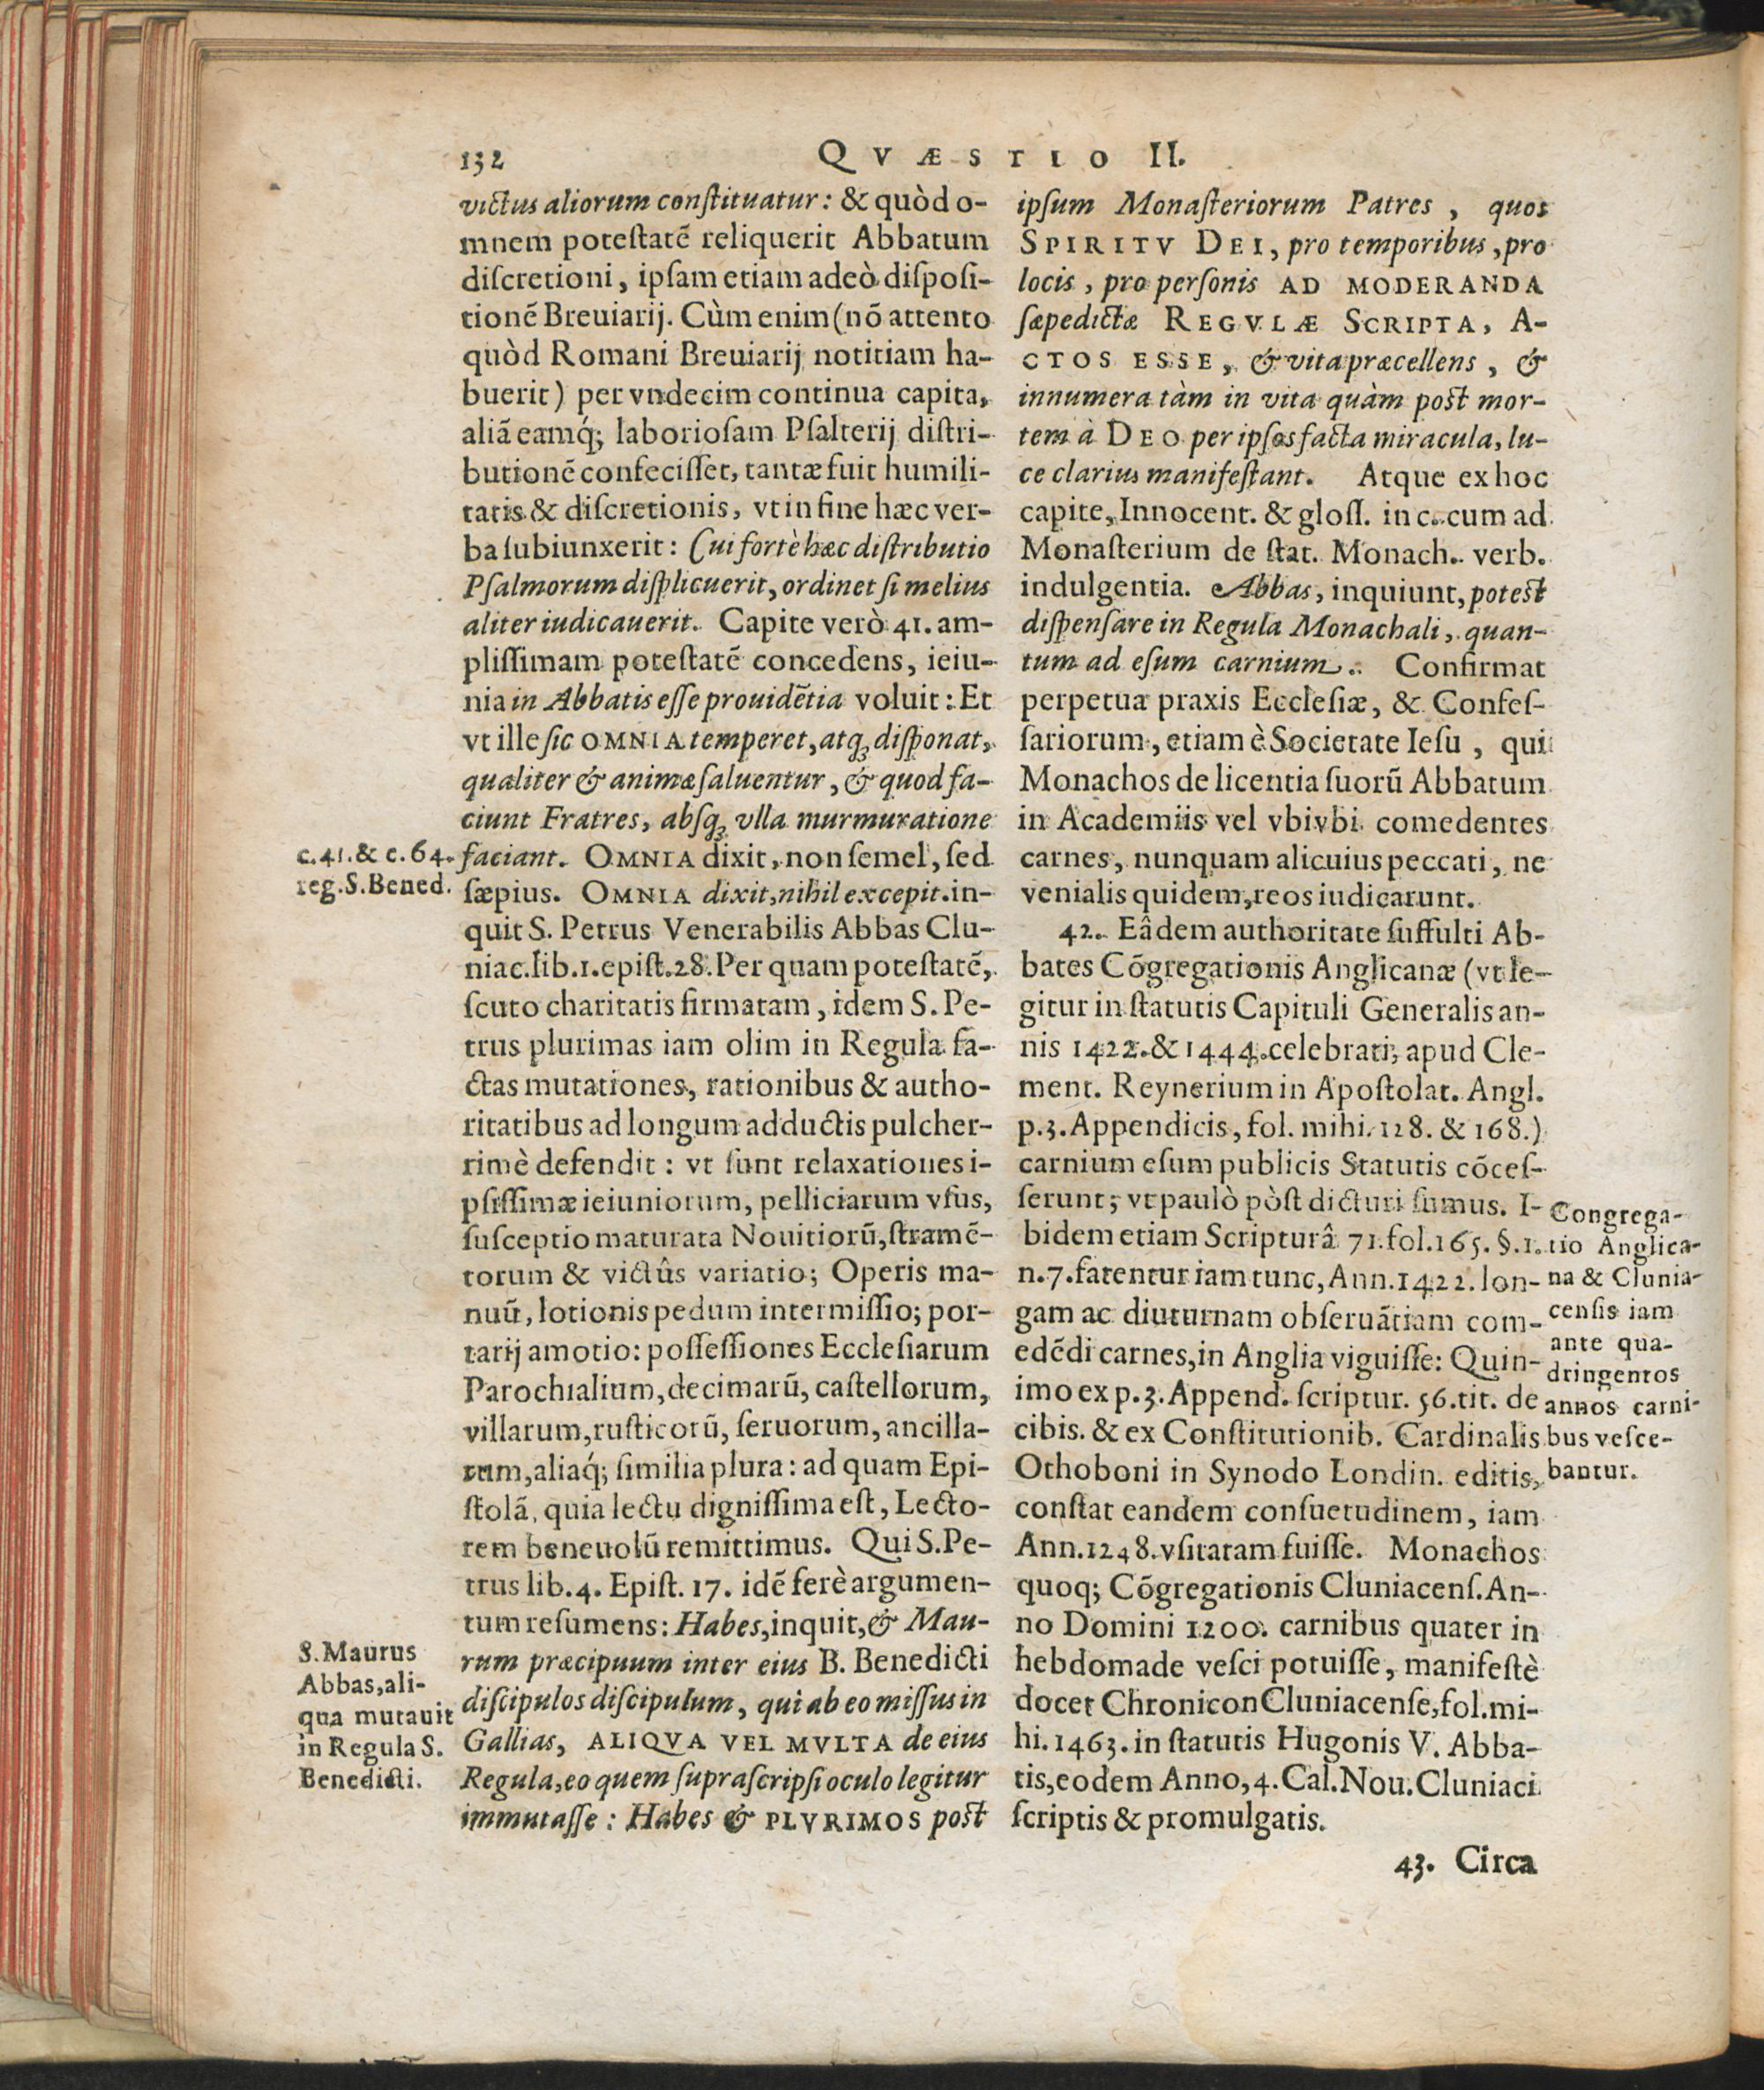 132
QVÆSTIO II.
victus aliorum conſtituatur: & quòd o-
mnem poteſtatē reliquerit Abbatum
diſcretioni, ipſam etiam adeò diſpoſi-
tionē Breuiarij. Cùm enim (nō attento
quòd Romani Breuiarij notitiam ha-
buerit) per vndecim continua capita,
aliā eamq́; laborioſam Pſalterij diſtri-
butionē confeciſſet, tantæ fuit humili-
tatis & diſcretionis, vt in fine hæc ver-
ba ſubiunxerit: Cui fortè hæc diſtributio
Pſalmorum diſplicuerit, ordinet ſi melius
aliter iudicauerit. Capite verò 41. am-
pliſſimam poteſtatē concedens, ieiu-
nia in Abbatis eſſe prouidētia voluit: Et
vt ille ſic OMNIA temperet, atq; diſponat,
qualiter & animæ ſaluentur, & quod fa-
ciunt Fratres, abſq; vlla murmuratione
faciant. OMNIA dixit, non ſemel, ſed
ſæpius. OMNIA dixit, nihil excepit. in-
quit S. Petrus Venerabilis Abbas Clu-
niac. lib. 1. epiſt. 28. Per quam poteſtatē,
ſcuto charitatis firmatam, idem S. Pe-
trus plurimas iam olim in Regula fa-
ctas mutationes, rationibus & autho-
ritatibus ad longum adductis pulcher-
rimè defendit: vt ſunt relaxationes i-
pſiſſimæ ieiuniorum, pelliciarum vſus,
ſuſceptio maturata Nouitiorū, ſtramē-
torum & victûs variatio; Operis ma-
nuū, lotionis pedum intermiſſio; por-
tarij amotio: poſſeſſiones Eccleſiarum
Parochialium, decimarū, caſtellorum,
villarum, ruſticorū, ſeruorum, ancilla-
rum, aliaq́; ſimilia plura: ad quam Epi-
ſtolā, quia lectu digniſſima eſt, Lecto-
rem beneuolū remittimus. Qui S. Pe-
trus lib. 4. Epiſt. 17. idē ferè argumen-
tum reſumens: Habes, inquit, & Mau-
rum præcipuum inter eius B. Benedicti
diſcipulos diſcipulum, qui ab eo miſſus in
Gallias, ALIQVA VEL MVLTA de eius
Regula, eo quem ſupraſcripſi oculo legitur
immutaſſe: Habes & PLVRIMOS poſt
c. 41. & c. 64.
reg. S. Bened.
S. Maurus
Abbas, ali-
qua mutauit
in Regula S.
Benedicti.
ipſum Monaſteriorum Patres, quos
SPIRITV DEI, pro temporibus, pro
locis, pro perſonis AD MODERANDA
ſæpedictæ REGVLÆ SCRIPTA, A-
CTOS ESSE, & vita præcellens, &
innumera tàm in vita quàm poſt mor-
tem à DEO per ipſos facta miracula, lu-
ce clarius manifeſtant. Atque ex hoc
capite, Innocent. & gloſſ. in c. cum ad
Monaſterium de ſtat. Monach. verb.
indulgentia. Abbas, inquiunt, poteſt
diſpenſare in Regula Monachali, quan-
tum ad eſum carnium. Confirmat
perpetua praxis Eccleſiæ, & Confeſ-
ſariorum, etiam è Societate Ieſu, qui
Monachos de licentia ſuorū Abbatum
in Academiis vel vbivbi comedentes
carnes, nunquam alicuius peccati, ne
venialis quidem, reos iudicarunt.
42. Eâdem authoritate ſuffulti Ab-
bates Cōgregationis Anglicanæ (vt le-
gitur in ſtatutis Capituli Generalis an-
nis 1422. & 1444. celebrati, apud Cle-
ment. Reynerium in Apoſtolat. Angl.
p. 3. Appendicis, fol. mihi. 128. & 168.)
carnium eſum publicis Statutis cōceſ-
ſerunt; vt paulò pòſt dicturi ſumus. I-
bidem etiam Scripturâ 71. fol. 165. §. 1.
n. 7. fatentur iam tunc, Ann. 1422. lon-
gam ac diuturnam obſeruātiam com-
edēdi carnes, in Anglia viguiſſe: Quin-
imo ex p. 3. Append. ſcriptur. 56. tit. de
cibis. & ex Conſtitutionib. Cardinalis
Othoboni in Synodo Londin. editis,
conſtat eandem conſuetudinem, iam
Ann. 1248. vſitatam fuiſſe. Monachos
quoq; Cōgregationis Cluniacenſ. An-
no Domini 1200. carnibus quater in
hebdomade veſci potuiſſe, manifeſtè
docet Chronicon Cluniacenſe, fol. mi-
hi. 1463. in ſtatutis Hugonis V. Abba-
tis, eodem Anno, 4. Cal. Nou. Cluniaci
ſcriptis & promulgatis.
Congrega-
tio Anglica-
na & Clunia-
cenſis iam
ante qua-
dringentos
annos carni-
bus veſce-
bantur.
43. Circa